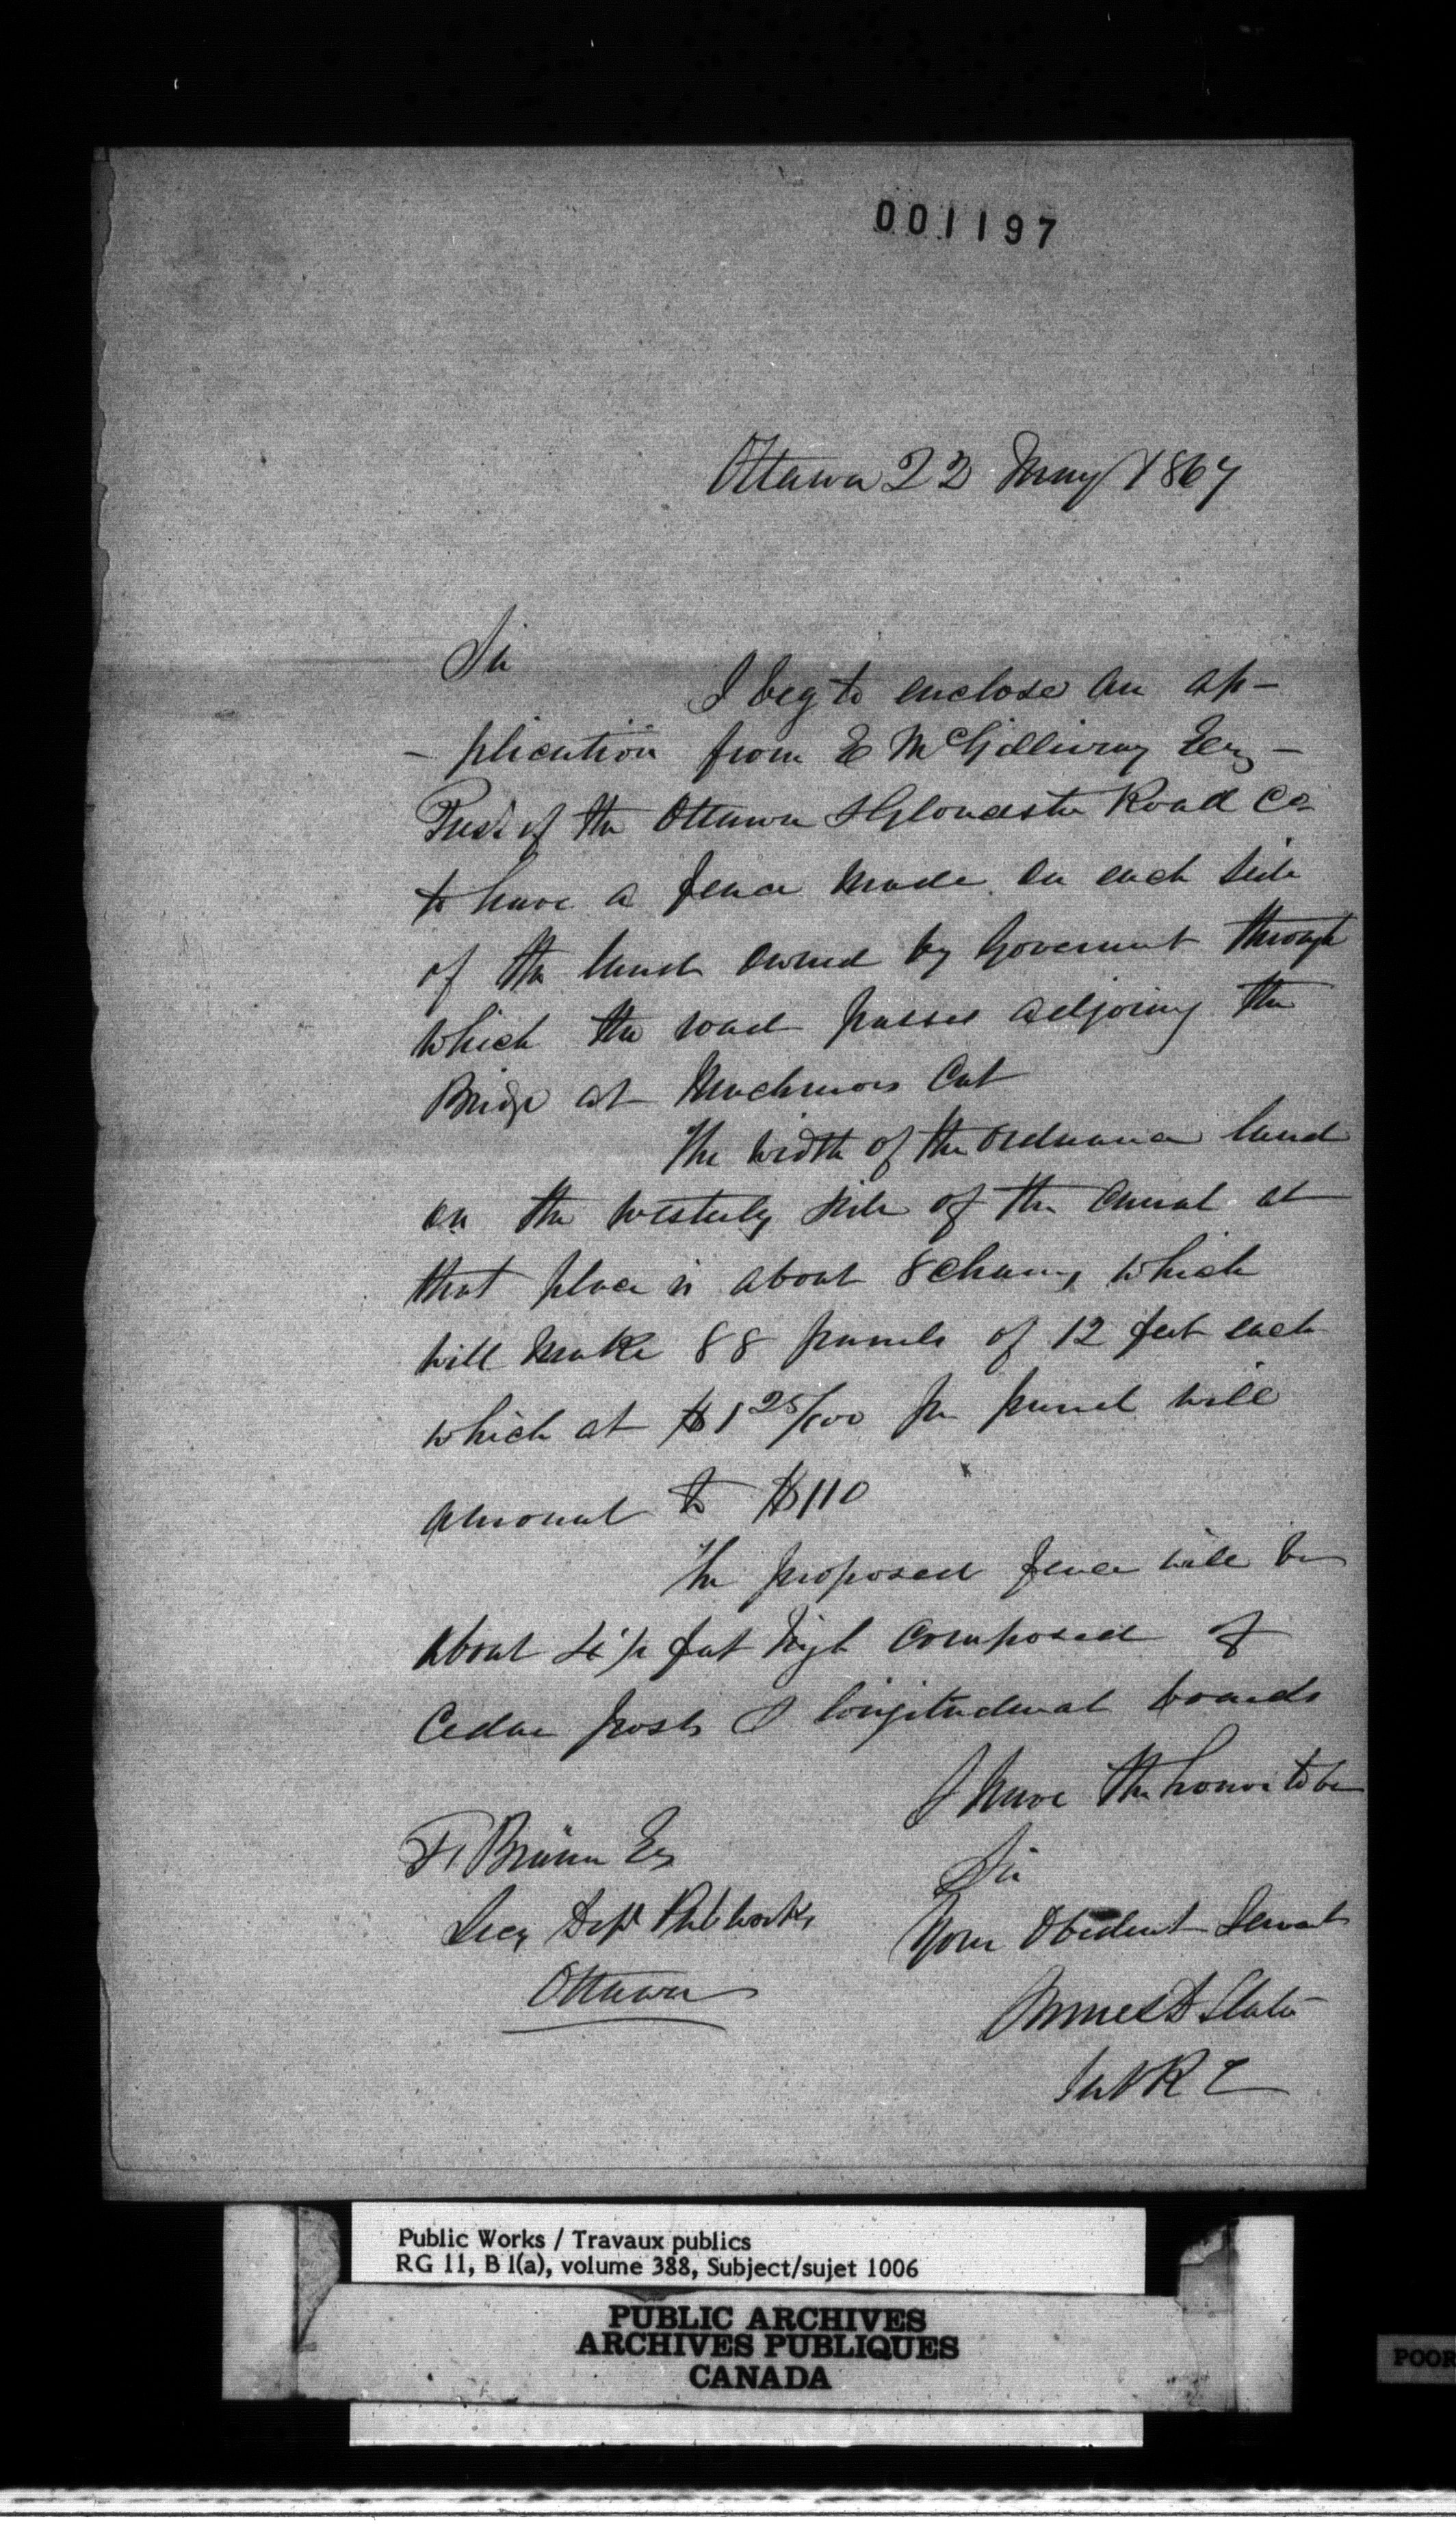 001197
Ottawa 22 May 1867
Sir
I beg to enclose an ap-
- plication from E McGillivray Esq -
Prest of the Ottawa & Gloucester Road Co
to have a fence made on each side
of the land owned by Goverment through
which the road passes adjoing the
Bridge at Cut
The width of the Ordnance land
on the westerly side of the Canal at
that place is about 8 chains which
will make 88 pannels of 12 feet each
which at $1 25/100 per pannel will
amount to $110
The proposed fence will be
about 4½ feet high composed of
Cedar posts & longitudenal boards
I have the honor to be
Sir
Your Obedient Servant
James D Slater
Supt R C
F. Braün Esq
Secy Dept Pub works
Ottawa
Public Works / Travaux publics
RG 11, B 1(a), volume 388, Subject/sujet 1006
PUBLIC ARCHIVES
ARCHIVES PUBLIQUES
CANADA
POOR